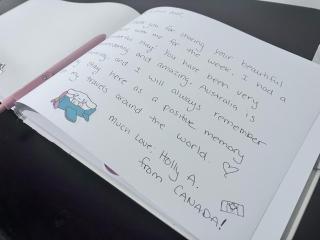 you for sharing your beautiful
with me for the week. I had a
stay. You have been very
and amazing. Australia is
and I will always remember
my stay here as a positive memory
my travels around the world. ♡
Much Love, Holly A.
from CANADA!